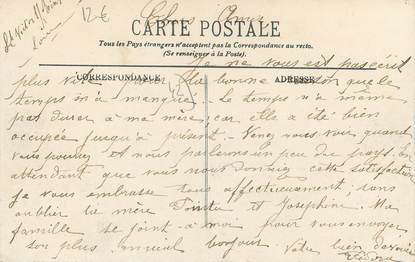 12€
Chers Amis
CARTE POSTALE
Tous les Pays étrangers n'acceptent pas la Correspondance au recto.
(Se renseigner à la Poste).
Je ne vous est pas écrit
CORRESPONDANCE
ADRESSE
plus vite pour la bonne raison que le
temps m'a manqué. Le temps n'a même
pas durer à ma mère, car elle a été bien
occupée jusqu'à présent. Venez nous voir quand
vous pourrez et nous parlerons un peu du pays. En
attendant que vous nous donniez cette satisfaction
je vous embrasse tous affectueusement, sans
oublier la mère et Joséphine. Ma
famille se joint à moi pour vous envoyer
son plus amical bonjour. Votre bien dévouée